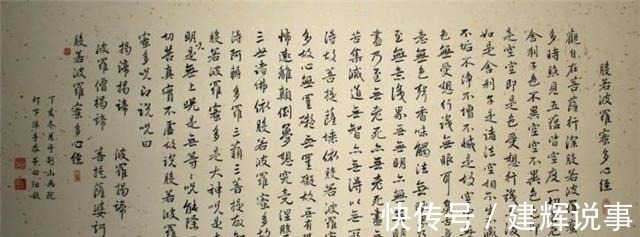 般若波羅蜜多心經
觀自在菩薩行深般若波
多時照見五蘊皆空度一
舍利子色不異空空不異色
是空空即是色受想行識
如是舍利子是諸法空相不
不垢不淨不增不減是故空
色無受想行識無眼耳
意無色聲香味觸法無
至無意識界無無明亦無
盡乃至無老死亦無老死盡
苦集滅道無智亦無得以無
故菩提薩埵依般若波羅
多故心無罣礙無罣礙故無有
怖遠離顛倒夢想究竟涅槃
三世諸佛依般若波羅蜜多故
得阿耨多羅三藐三菩提故知
般若波羅蜜多是大神咒是大
明咒是無上咒是無等等咒能除
切苦真實不虛故說般若波羅
蜜多咒即說咒曰
揭諦揭諦 波羅揭諦
波羅僧揭諦 菩提薩婆訶
般若波羅蜜多心經
丁亥冬月于山画院
灯下
快传号/建辉说事